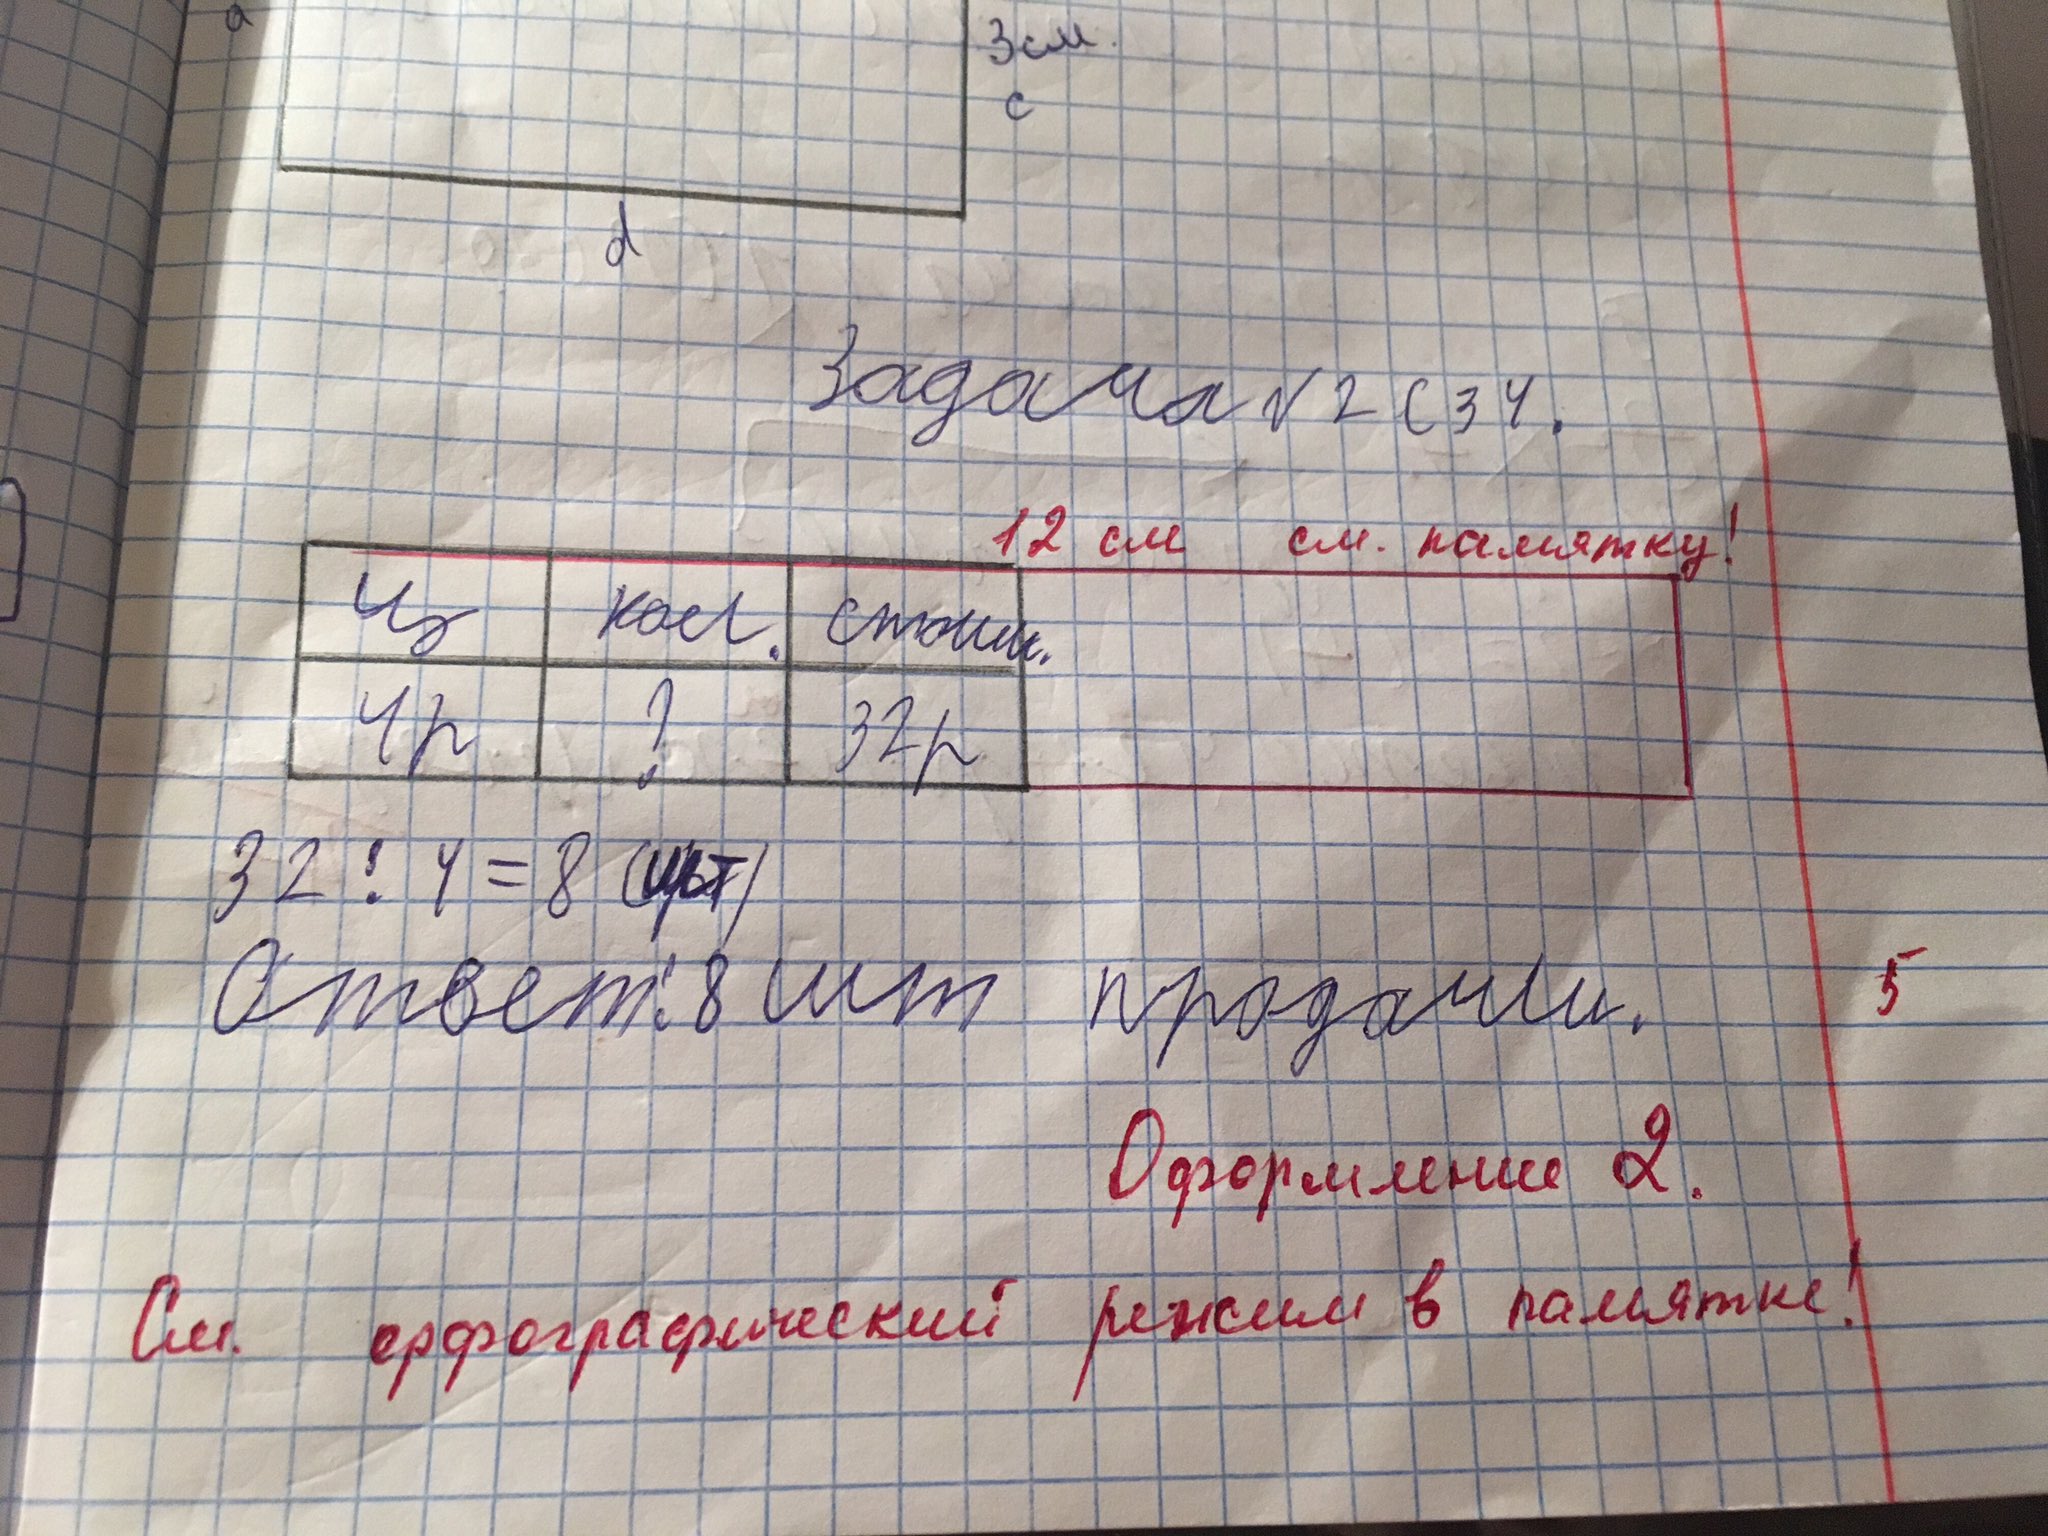 а
3см.
с
d
Задача №2 С 34.
12 см см. памятку!
Ц кол. стоим.
4р ? 32р
32 : 4 = 8 (шт)
Ответ: 8 шт продали.
5
Оформление 2.
См. орфографический режим в памятке!